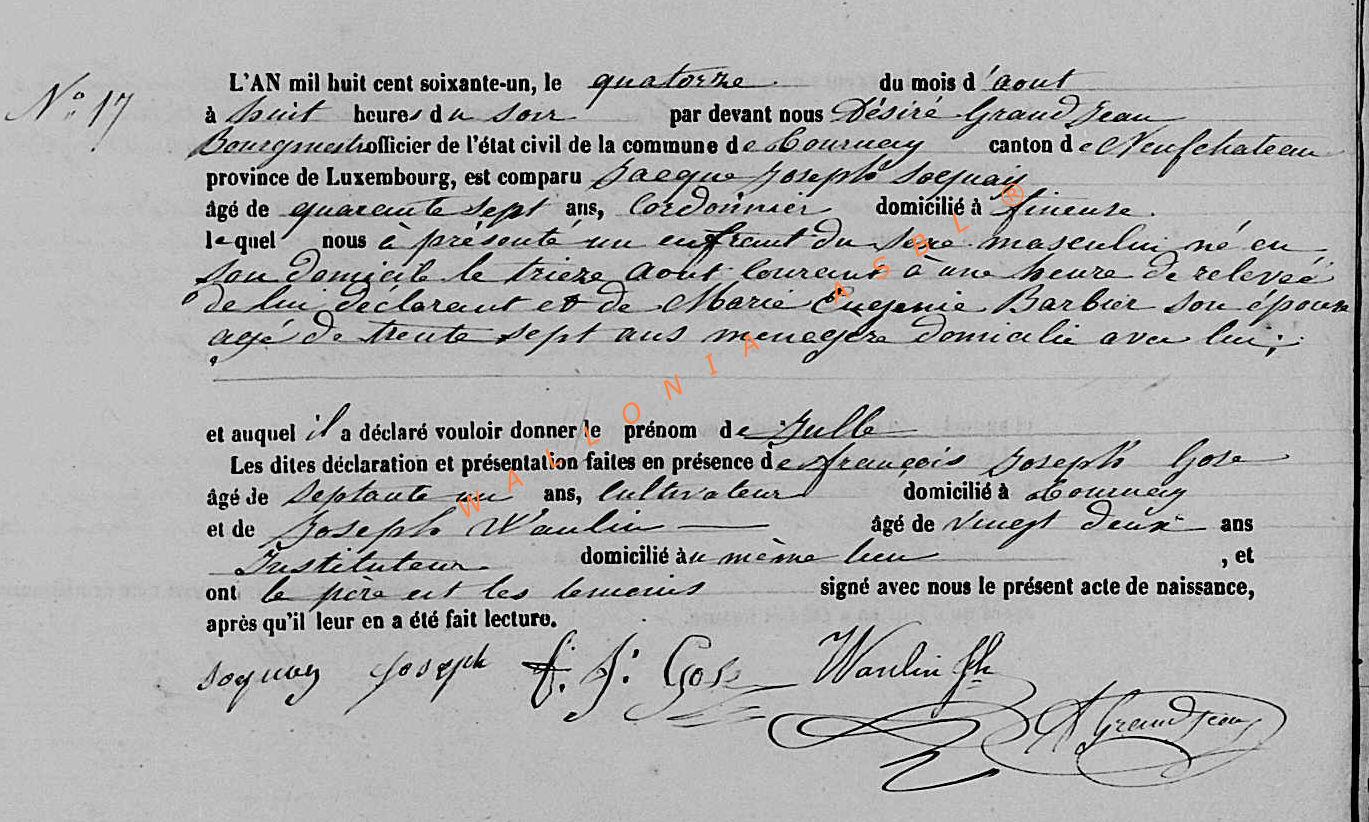 N° 17
L'AN mil huit cent soixante-un, le quatorze du mois d'aout
à huit heures du soir par devant nous Désiré Grandjean
Bourgmestre officier de l'état civil de la commune de Tournay canton de Neufchateau
province de Luxembourg, est comparu Jacque Joseph Soquay
âgé de quarante sept ans, Cordonnier domicilié à
lequel nous à présenté un enfant du sexe masculin né en
son domicile le trieze aout courant à une heure de relevée
de lui déclarant et de Marie Eugenie Barbier son épouse
agé de trente sept ans menagere domicilie avec lui;
et auquel il a déclaré vouloir donner le prénom de Julle
Les dites déclaration et présentation faites en présence de françois Joseph Gose
âgé de septante un ans, Cultivateur domicilié à Tournay
et de Joseph Waulin âgé de vingt deux ans
Instituteur domicilié au même lieu , et
ont le père et les temoins signé avec nous le présent acte de naissance,
après qu'il leur en a été fait lecture.
Soquay Joseph f. J. Gose Waulin Jh
Grandjean
WALLONIA ASBL ®